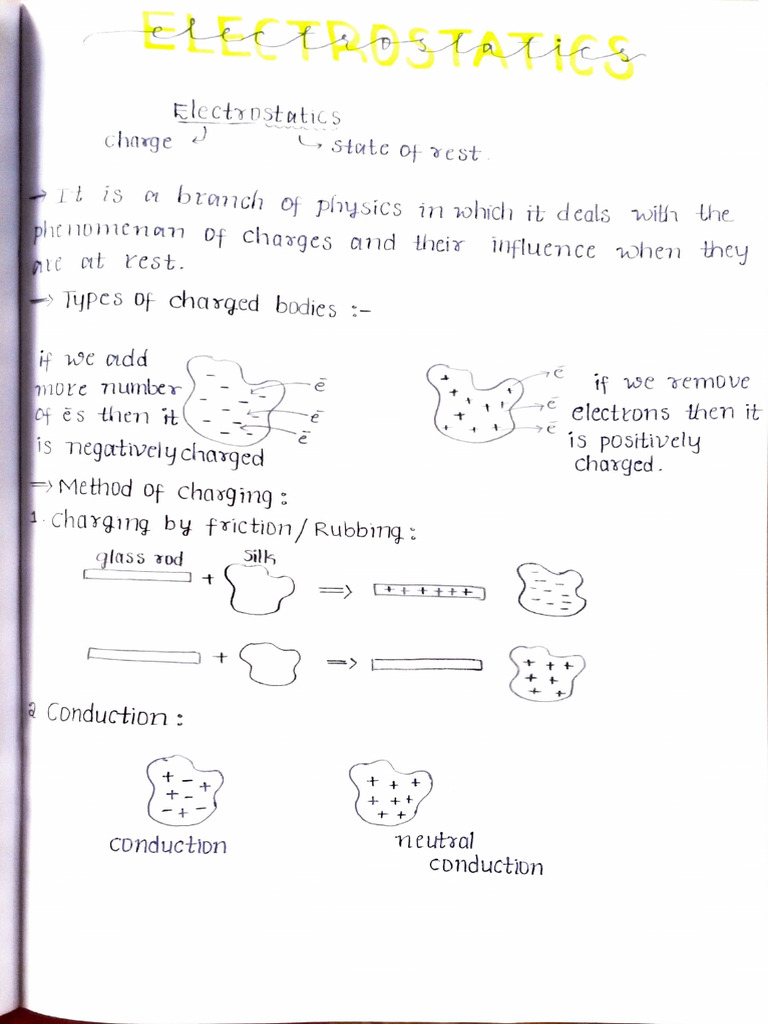 ELECTROSTATICS
electrostatics
Electrostatics
charge ↲ ↳ state of rest.
→ It is a branch of physics in which it deals with the
phenomenan of charges and their influence when they
are at rest.
→ Types of charged bodies :-
if we add
more number
of ēs then it
is negatively charged
- - - - - - - - - - - -
ē
ē
ē
+ + + + + + + + + + +
ē
ē
ē
if we remove
electrons then it
is positively
charged.
⇒ Method of charging :
1. Charging by friction / Rubbing :
glass rod + silk ⇒ + + + + + + - - - - - - - -
+ ⇒ + + + + + + + +
2 Conduction :
+ - +
+ -
- + -
conduction
+ + +
+ + +
+ +
neutral
conduction